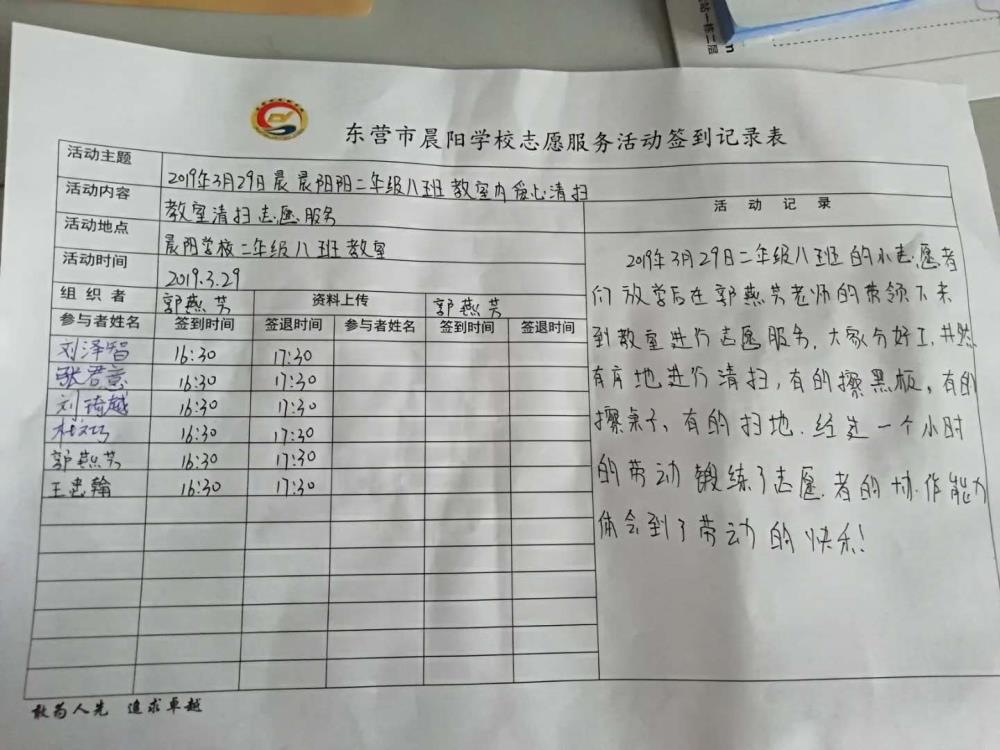 东营市晨阳学校志愿服务活动签到记录表
活动主题 2019年3月29日晨 晨阳阳二年级八班 教室内爱心清扫
活动内容 教室清扫志愿服务
活动地点 晨阳学校二年级八班教室
活动时间 2019.3.29
组织者 郭燕芳 资料上传 郭燕芳
参与者姓名 签到时间 签退时间 参与者姓名 签到时间 签退时间
刘泽智 16:30 17:30
张君豪 16:30 17:30
刘琦越 16:30 17:30
杜文巧 16:30 17:30
郭燕芳 16:30 17:30
王忠翰 16:30 17:30
活动记录
2019年3月29日二年级八班班的小志愿者
们放学后在郭燕芳老师的带领下来
到教室进行志愿服务,大家分好工,井然
有序地进行清扫,有的擦黑板,有的
擦桌子,有的扫地.经过一个小时
的劳动锻练了志愿者的协作能力
体会到了劳动的快乐!
敢为人先 追求卓越